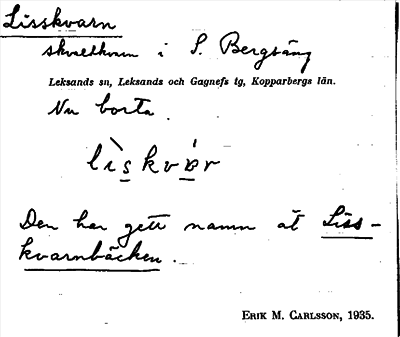 Lisskvarn
skvaltkvarn i S. Bergsäng
Leksands sn, Leksands och Gagnefs tg, Kopparbergs län.
Nu borta.
lìskvár
Den har gett namn åt Liss-
kvarnbäcken.
ERIK M. CARLSSON, 1935.